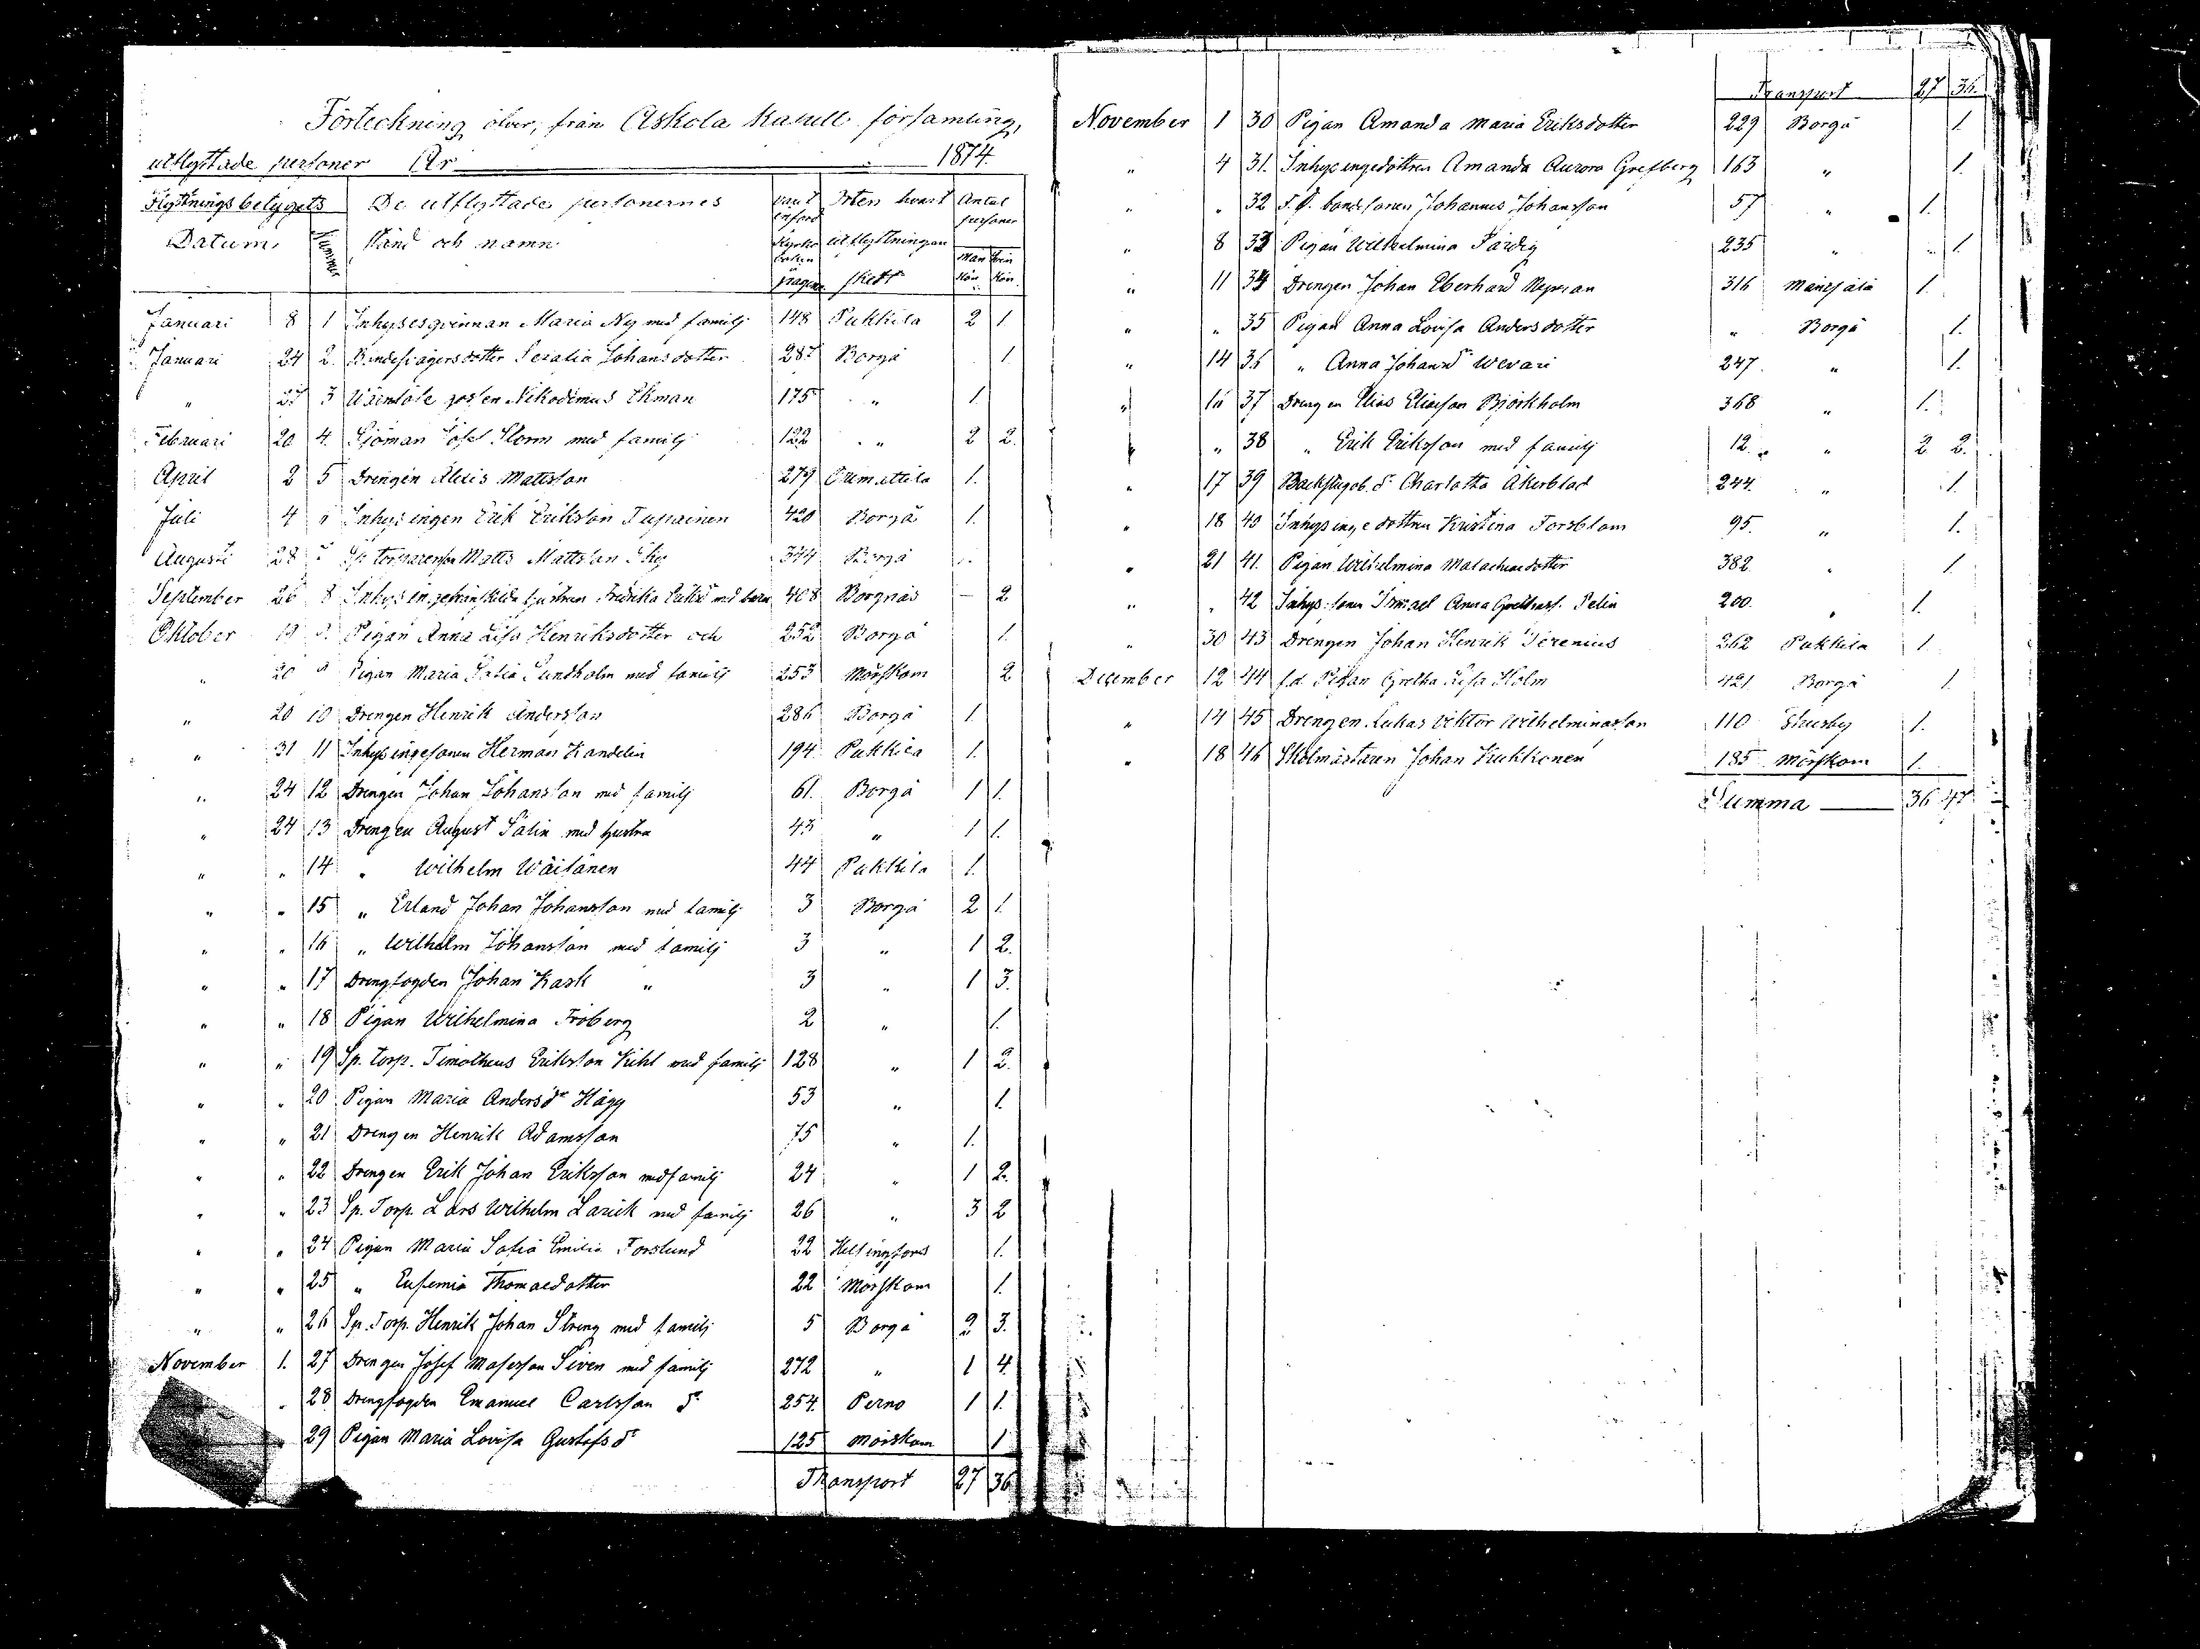 Förteckning öfver, från Askola Kapell församling,
utflyttade personer År 1874.
Flyttningsbetygets
De utflyttade personernes
Orten hvart
Antal personer
Datum.
Nummer
Stånd och namn
Kyrkoboken
utflyttningen
Mankön
pagina
skett
Januari 8 1 Inhysesqvinnan Maria Ny med familj 148 Pukkila 2 1.
Januari 24 2. dotter Johansdotter 287 Borgå 1.
" 27 3 Nikodemus Ekman 175 " 1.
Februari 20 4. Sjöman Josef Storm med familj 122 " 2 2.
April 2 5 Drengen Alexis Mattsson 279 Orimattila 1.
Juli 4 6 Inhysingen Erik Eriksson Tupainen 420 Borgå 1.
Augusti 28 Matts Mattsson 344 Borgå
September 26 8 hustrun Fredrika med barn 408 Borgnäs — 2
Oktober 19 Pigan Anna Lisa Henriksdotter och 252 Borgå 1.
" 20 Pigan Maria Sofia Sundholm med familj 253 Mörskom 2
" 20 10 Drengen Henrik Andersson 286 Borgå 1.
" 31 11 Inhysingesonen Herman Kandelin 194 Pukkila 1.
" 24 12 Drengen Johan Johansson med familj 61. Borgå 1 1.
" 24 13 Drengen August Sälin med hustru 43 " 1 1.
" " 14 " Wilhelm Wäisänen 44 Pukkila 1.
" " 15 " Erland Johan Johansson med familj 3 Borgå 2 1.
" " 16 " Wilhelm Johansson med familj 3 " 1 2.
" " 17 Drengfogden Johan Kask " 3 " 1 3.
" " 18 Pigan Wilhelmina Froberg 2 " 1.
" " 19 Sp. torp. Timotheus Eriksson Kihl med familj 128 " 1 2.
" " 20 Pigan Maria Andersdr Hägg 53 " 1.
" " 21 Drengen Henrik Adamsson 75 " 1.
" " 22 Drengen Erik Johan Eriksson med familj 24 " 1 2.
" " 23 Sp. Torp. Lars Wilhelm Larick med familj 26 " 3 2
" " 24 Pigan Maria Sofia Emilia Forslund 22 Helsingfors 1.
" " 25 " Eufemia Thomasdotter 22 Mörskom 1.
" " 26 Sp. Torp. Henrik Johan Streng med familj 5 Borgå 2 3.
November 1. 27 Drengen Josef Mosesson Siven med familj 272 " 1 4.
" 28 Drengfogden Emanuel Carlsson do 254. Perno 1 1.
" 29 Pigan Maria Lovisa Gustafsdr 125 Mörskom 1
Transport 27 36
Transport 27 36.
November 1 30 Pigan Amanda Maria Eriksdotter 229 Borgå 1.
" 4 31. Inhysingedottren Amanda Aurora Grefberg 163 " 1.
" " 32 F.d. bondesonen Johannes Johansson 57 " 1.
" 8 33 Pigan Wilhelmina Färdig 235 " 1.
" 11 34 Drengen Johan Eberhard 316 Mäntsälä 1.
" " 35 Pigan Anna Lovisa Andersdotter " Borgå 1.
" 14 36 " Anna Johansdr Wevari 247 " 1.
" 16 37 Drengen Elias Eliasson Björkholm 368 " 1.
" " 38 " Erik Eriksson med familj 12. " 2 2.
" 17 39 Backstugob. dr Charlotta Åkerblad 244. " 1.
" 18 40 Inhysingedottren Kristina Forsblom 95. " 1.
" 21 41. Pigan Wilhelmina Malachiasdotter 382 " 1.
" " 42 Inhys. sonen Ismael Anna Grethasf. Pelin 200. " 1.
" 30 43 Drengen Johan Henrik Serenius 262 Pukkila 1.
December 12 44 f.d. Pigan Gretha Lisa Holm 421. Borgå 1.
" 14 45 Drengen Lukas Viktor Wilhelminasson 110 1.
" 18 46 Skolmästaren Johan Kukkonen 185 Mörskom 1.
Summa 36 47